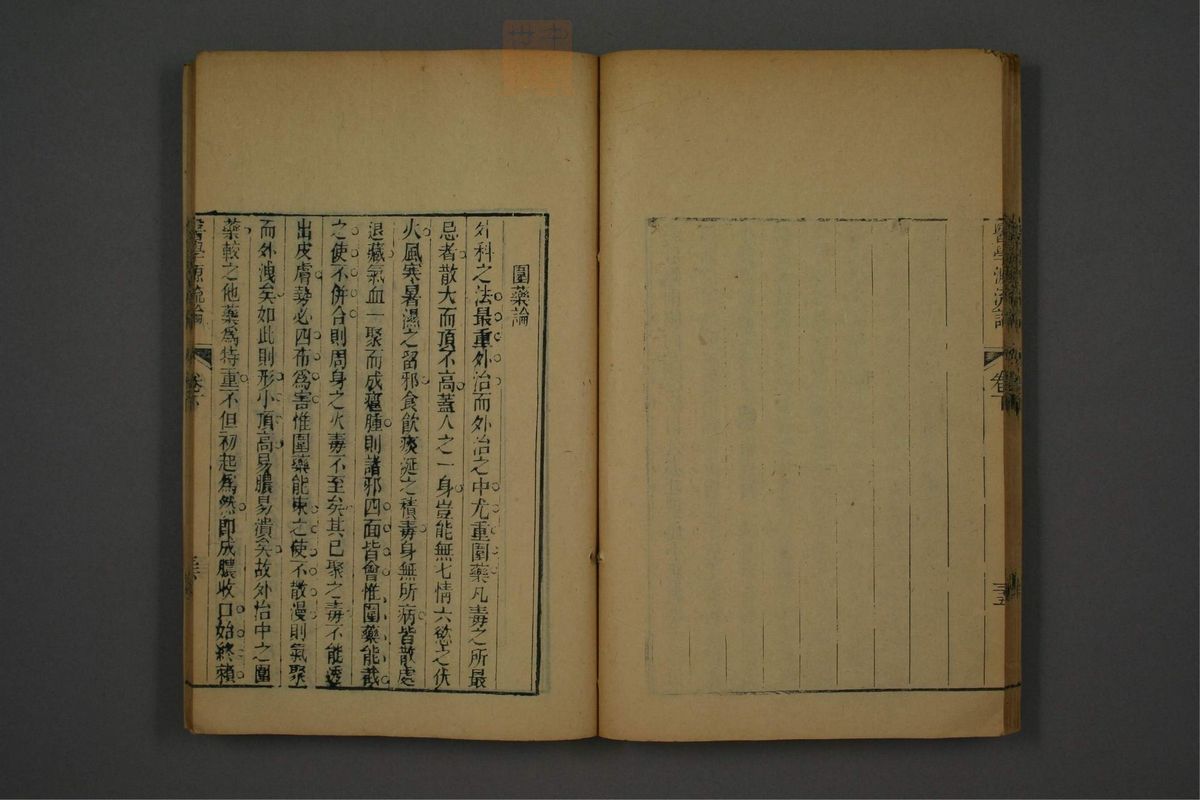 醫學源流論
卷下
三五
圍藥論
外科之法最重外治而外治之中尤重圍藥凡毒之所最
忌者散大而頂不高蓋人之一身豈能無七情六慾之伏
火風寒暑濕之留邪食飲痰涎之積毒身無所病皆散處
退藏氣血一聚而成癰腫則諸邪四面皆會惟圍藥能截
之使不併合則周身之火毒不至矣其已聚之毒不能透
出皮膚勢必四布為害惟圍藥能束之使不散漫則氣聚
而外洩矣如此則形小頂高易膿易潰矣故外治中之圍
藥較之他藥為特重不但初起為然即成膿收口始終賴
醫學源流論
卷下